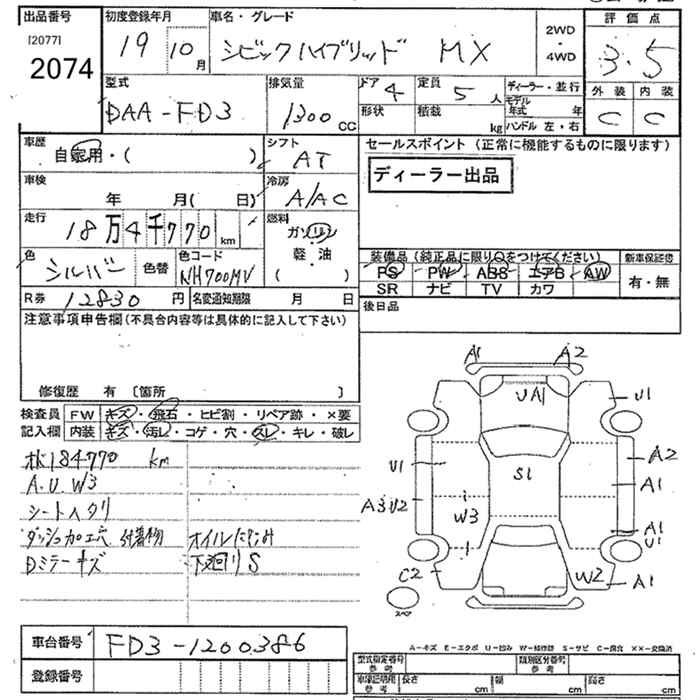 出品番号
[2077]
2074
初度登録年月
19 10月
車名・グレード
シビックハイブリッド MX
2WD・4WD
評価点
3.5
型式
DAA-FD3
排気量
1300 CC
ドア 4
形状
定員 5人
積載 kg
ディーラー・並行
モデル年式 年
ハンドル 左・右
外装 内装
C C
車歴
自家用・( )
シフト
AT
セールスポイント(正常に機能するものに限ります)
ディーラー出品
車検
年 月( 日)
冷房
A/AC
走行
18万4千770km
燃料
ガソリン
軽・油
( )
色
シルバー
色替
色コード
NH700MV
装備品(純正品に限り○をつけてください)
新車保証書
PS PW ABS エアB AW
SR ナビ TV カワ
有・無
R券 12830 円
名変通知期限 月 日
後日品
注意事項申告欄(不具合内容等は具体的に記入して下さい)
修復歴 有 〔箇所 〕
検査員 FW キズ・飛石・ヒビ割・リペア跡・×要
記入欄 内装 キズ・汚レ・コゲ・穴・スレ・キレ・破レ
184770 km
A.U.W3
シートヘタリ
ダッシュ加工穴 付着物 オイルにじみ
Dミラーキズ 下廻りS
A1 A2
UA1 U1
U1 S1 A2
A1
A3U2 W3
A1
U1
C2 W2 A1
スペア
A-キズ E-エクボ U-凹み W-補修跡 S-サビ C-腐食 ××-交換済
車台番号 FD3-1200386
登録番号
型式指定番号 参考
類別区分番号 参考
車庫証明用 参考
長さ cm
幅 cm
高さ cm